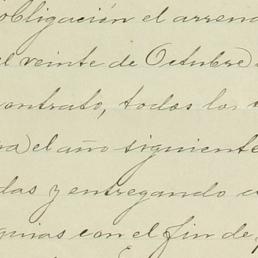 obligación el arrend
el veinte de Octubre
ontrato, todos los
ra el año siguiente
das y entregando
quias con el fin de